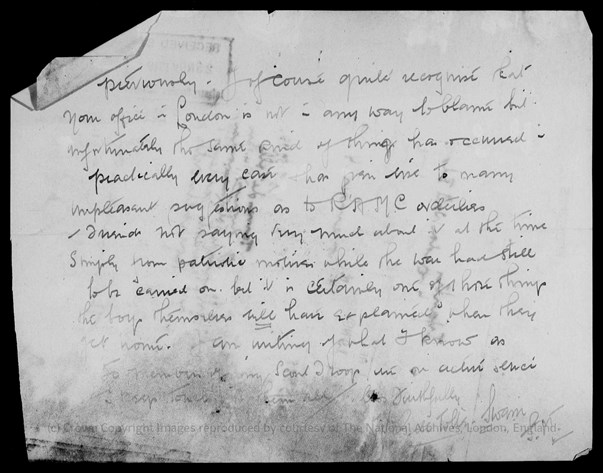 previously. I of course quite recognise that
your office in London is not in any way to blame but
unfortunately the same kind of thing has occurred in
practically every case & has given rise to many
unpleasant suggestions as to RAMC orderlies
I not saying very much about it at the time
simply from patriotic motives while the war had still
to be carried on. but it is certainly one of those things
the boys themselves will have explained when they
get home. I am writing of what I know as
members of my Scout Troop are on active service
I keep touch all Yrs faithfully
Swann
(c) Crown Copyright Images reproduced by courtesy of The National Archives, London, England